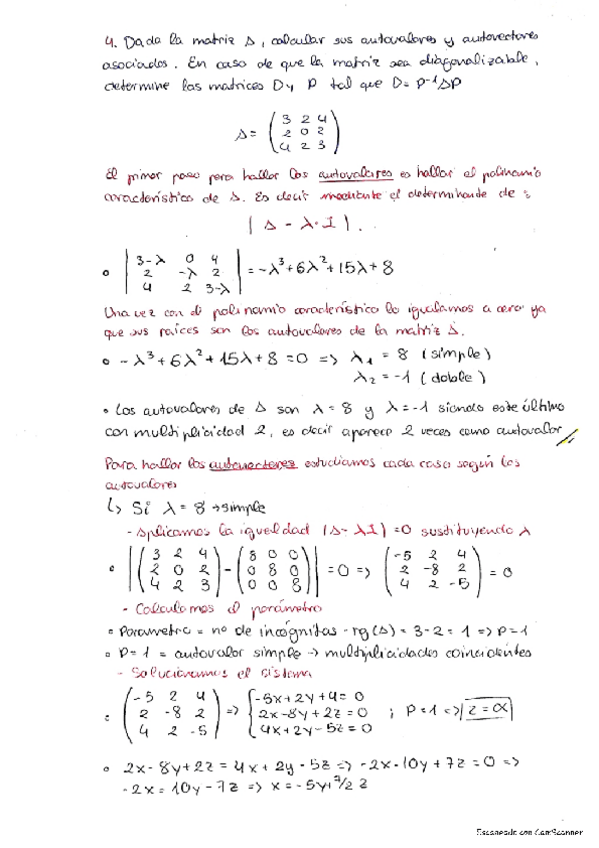 4. Dada la matriz A, calcular sus autovalores y autovectores
asociados. En caso de que la matriz sea diagonalizable,
determine las matrices D y P tal que D= P⁻¹AP
A= (3 2 4
2 0 2
4 2 3)
El primer paso para hallar los autovalores es hallar el polinomio
característico de A. Es decir mediante el determinante de :
| A - λ·I |.
| 3-λ 0 4
2 -λ 2
4 2 3-λ | = -λ³+6λ²+15λ+8
Una vez con el polinomio característico lo igualamos a cero ya
que sus raíces son los autovalores de la matriz A.
-λ³+6λ²+15λ+8=0 => λ₁ = 8 (simple)
λ₂ = -1 (doble)
Los autovalores de A son λ=8 y λ=-1 siendo este último
con multiplicidad 2, es decir aparece 2 veces como autovalor
Para hallar los autovectores estudiamos cada caso según los
autovalores
↳ Si λ=8 →simple
- Aplicamos la igualdad |A-λI|=0 sustituyendo λ
|(3 2 4
2 0 2
4 2 3) - (8 0 0
0 8 0
0 0 8)| = 0 => (-5 2 4
2 -8 2
4 2 -5) = 0
- Calculamos el parámetro
Parametro = nº de incógnitas - rg(A) = 3-2 = 1 => P=1
P=1 = autovalor simple → multiplicidades coincidentes
- Solucionamos el sistema
(-5 2 4
2 -8 2
4 2 -5) => {-5x+2y+4=0
2x-8y+2z=0
4x+2y-5z=0 ; P=1 => z=α
2x-8y+2z = 4x+2y-5z => -2x-10y+7z=0 =>
-2x=10y-7z => x=-5y+7/2 z
Escaneado con CamScanner